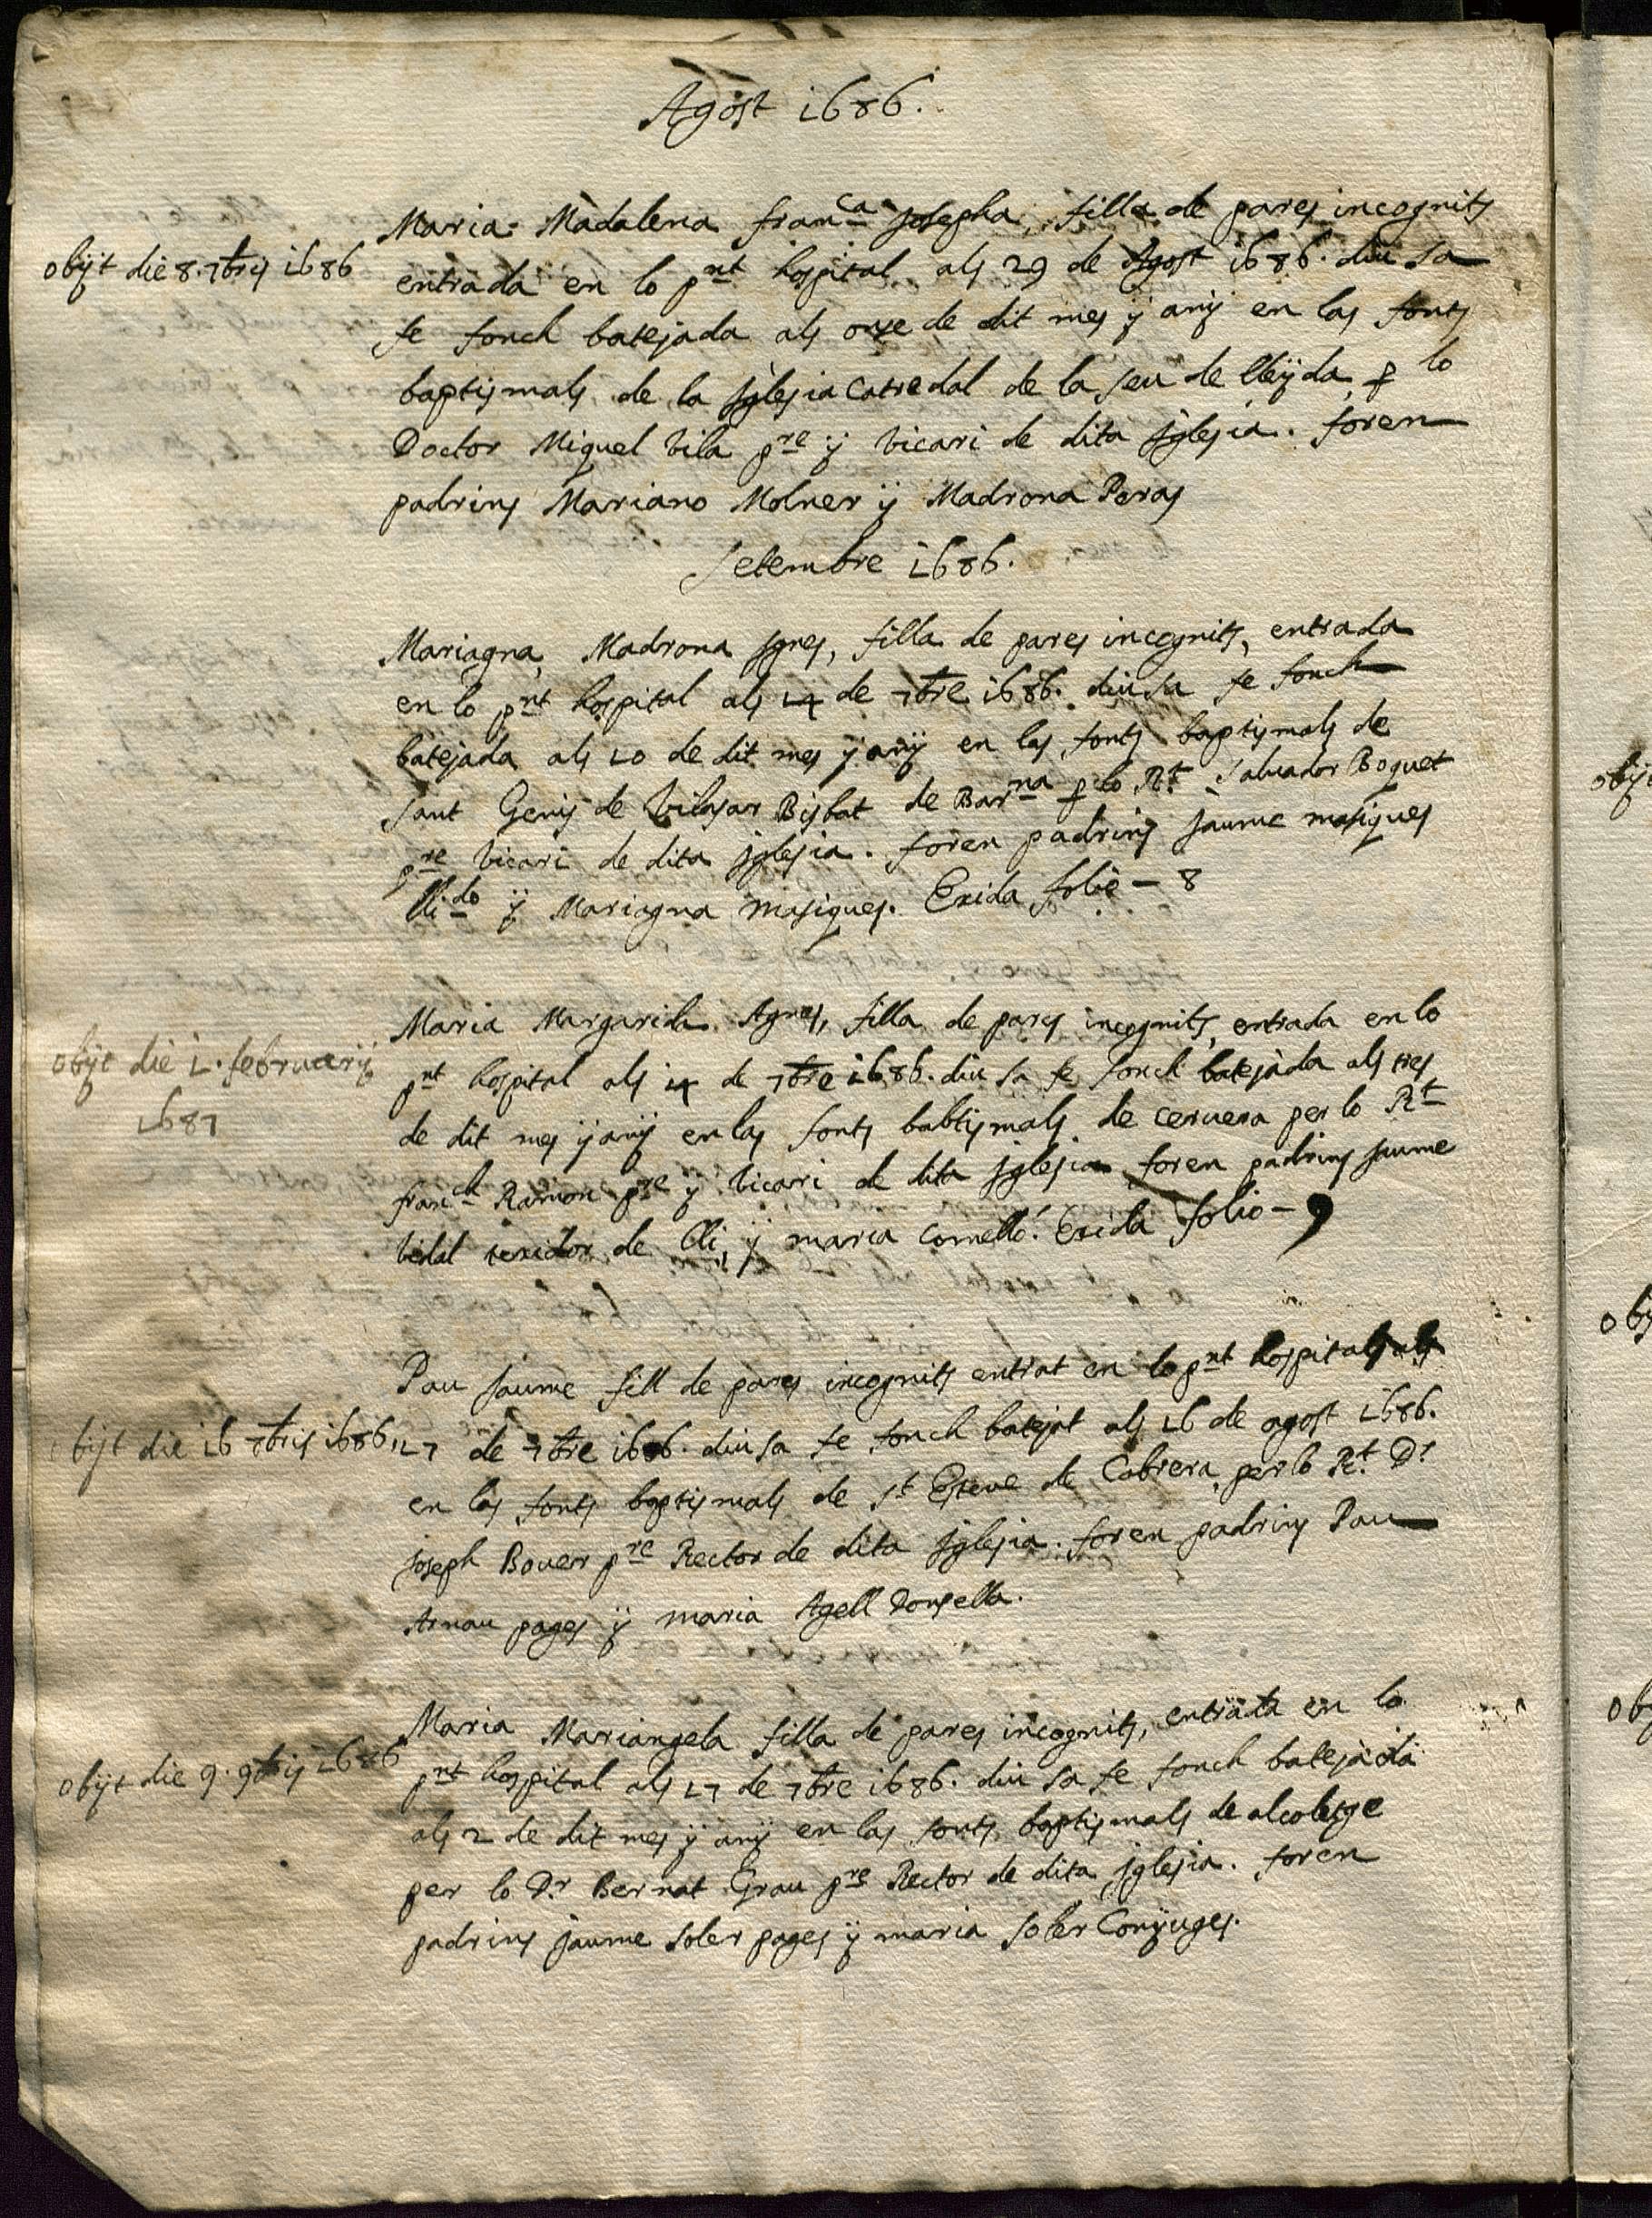 Agost 1686.
obijt die 8. 7bris 1686
Maria Madalena franca Josepha, filla de pares incognits
entrada en lo pnt hospital als 29 de Agost 1686. diu sa
fe fonch batejada als onse de dit mes ÿ anÿ en las fonts
baptismals de la Iglesia Catredal de la seu de lleÿda, p lo
Doctor Miquel Vila pre ÿ Vicari de dita Iglesia. foren
padrins Mariano Molner ÿ Madrona Peras
Setembre 1686.
Mariagna Madrona Ignes, filla de pares incognits, entrada
en lo pnt hospital als 14 de 7bre 1686. diu sa fe fonch
batejada als 10 de dit mes ÿ anÿ en las fonts baptismals de
sant Genis de Vilasar Bisbat de Barna p lo Rt. Saluador Boquet
pre Vicari de dita Iglesia. foren padrins Jaume masiques
y Mariagna masiques. Exida folio - 8
obijt die 1. februarij
1687
Maria Margarida Agnes, filla de pares incognits, entrada en lo
pnt hospital als 14 de 7bre 1686. diu sa fe fonch batejada als tres
de dit mes ÿ anÿ en las fonts babtismals de ceruera per lo Rt
franch Ramon pre ÿ Vicari de dita Iglesia foren padrins Jaume
Vidal texidor de lli, ÿ maria Comelló. Exida folio - 9
obijt die 16 7bris 1686
Pau Jaume fill de pares incognits entrat en lo pnt hospital als
17 de 7bre 1686. diu sa fe fonch batejat als 16 de agost 1686.
en las fonts baptismals de st Esteue de Cabrera, per lo Rt. Dr
Joseph Bouer pre Rector de dita Iglesia. foren padrins Pau
Arnau pages ÿ maria Agell Donsella.
obijt die 9. 9bris 1686
Maria Mariangela filla de pares incognits, entrata en lo
pnt hospital als 17 de 7bre 1686. diu sa fe fonch batejada
als 2 de dit mes ÿ anÿ en las fonts baptismals de alcoletge
per lo Dr. Bernat Grau pre Rector de dita Iglesia. foren
padrins jaume soler pages ÿ maria soler Conjuges.